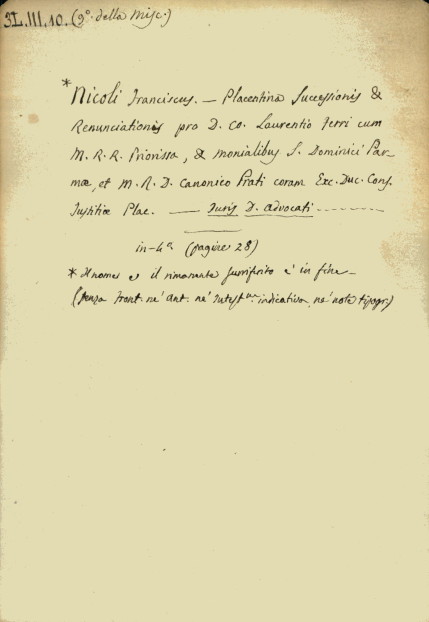 3L.III.10. (9º. della Misc.)
* Nicoli Franciscus. — Placentina Successionis &
Renunciationis pro D. Co. Laurentio Ferri cum
M. R. R. Priorissa, & monialibus S. Dominici Par-
mæ, et M. R. D. Canonico Prati coram Exc. Duc. Cons.
Justitiæ Plac. — Juris D. advocati
in-4º (pagine 28)
* Il nome e il rimanente surriferito è in fine
(senza front. nè ant. nè indicativa, nè note tipogr.)